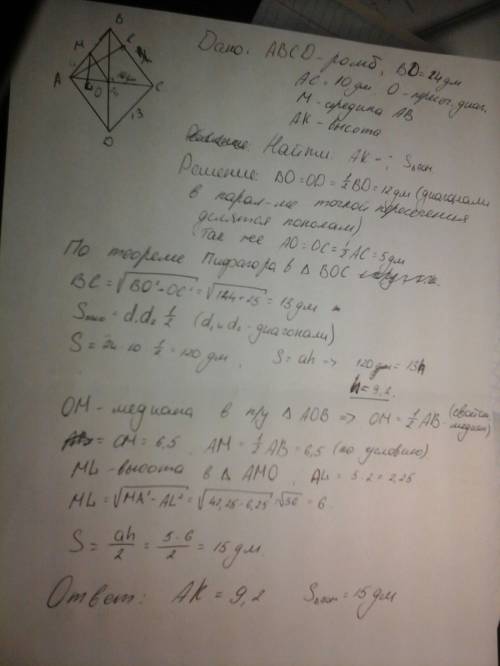 Дано: ABCD-ромб, BD=24дм
AC=10дм, O-перес. диаг.
M-средина AB
AK-высота
Найти: AK-?
Решение: BO=OD=½BD=12дм (диагонали
в парал-ме точкой пересечения
делятся пополам)
Так же AO=OC=½AC=5дм
По теореме Пифагора в Δ BOC
BC=√BO²+OC²=√144+25=13дм
S=d₁d₂½ (d₁ и d₂-диагонали)
S=24·10·½=120дм, S=ah=> 120дм=13h
h=9,2.
OM-медиана в п/у Δ AOB => OM=½AB (свойство медиан)
=OM=6,5, AM=½AB=6,5 (по условию)
ML-высота в Δ AMO, AL=5:2=2,25
ML=√MA²-AL²=√42,25-6,25=√36=6
S=ah/2=5·6/2=15дм
Ответ: AK=9,2 S=15дм
B
M
K
A
L
O
C
13
D